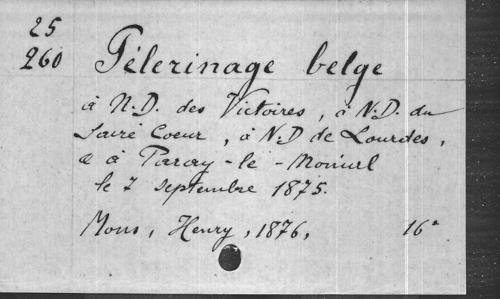 25
260
Pélerinage belge
à N.D. des Victoires, à N.D. du
Sacré Coeur, à N.D de Lourdes,
& à Paray-le-Monial
le 7 septembre 1875.
Mons, Henry, 1876, 16°